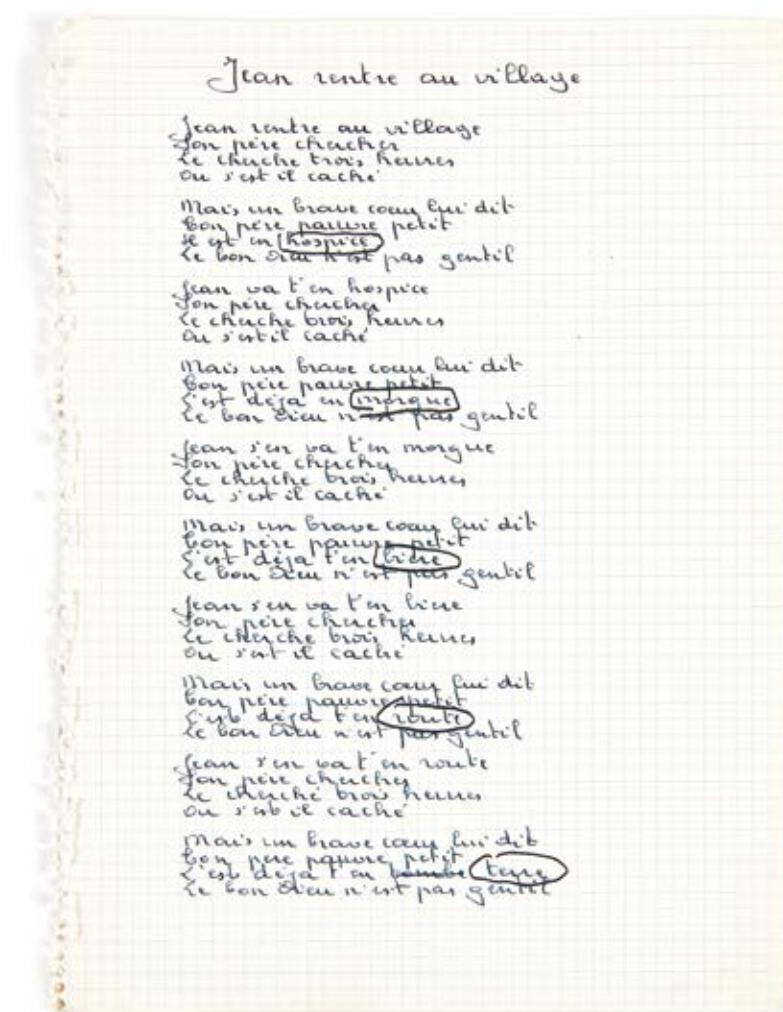 Jean rentre au village
Jean rentre au village
Son père chercher
Le cherche trois heures
Ou s'est il caché
Mais un brave coeur lui dit
Ton père pauvre petit
Il est en hospice
Le bon Dieu n'est pas gentil
Jean va t'en hospice
Son père chercher
Le cherche trois heures
Ou s'est il caché
Mais un brave coeur lui dit
Ton père pauvre petit
L'est déja en morgue
Le bon Dieu n'est pas gentil
Jean s'en va t'en morgue
Son père chercher
Le cherche trois heures
Ou s'est il caché
Mais un brave coeur lui dit
Ton père pauvre petit
L'est déja t'en bière
Le bon Dieu n'est pas gentil
Jean s'en va t'en bière
Son père chercher
Le cherche trois heures
Ou s'est il caché
Mais un brave coeur lui dit
Ton père pauvre petit
L'est déja t'en route
Le bon Dieu n'est pas gentil
Jean s'en va t'en route
Son père chercher
Le cherche trois heures
Ou s'est il caché
Mais un brave coeur lui dit
Ton père pauvre petit
L'est déja t'en terre
Le bon Dieu n'est pas gentil